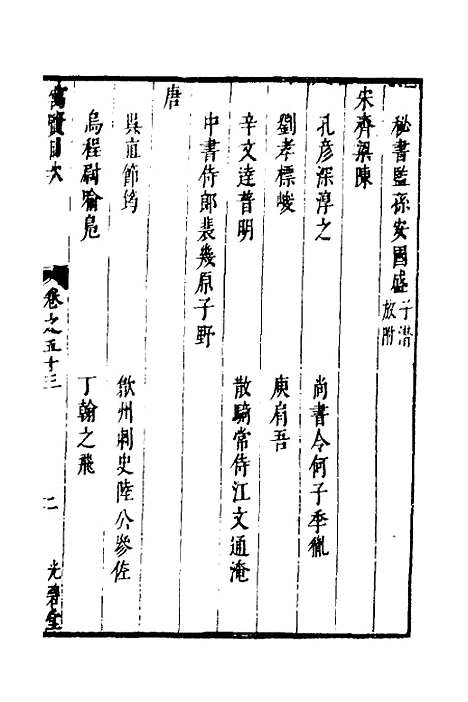 秘書監孫安國盛子潛放附
宋齊梁陳
孔彥深淳之　尚書令何子季胤
劉孝標峻　庾肩吾
辛文達普明　散騎常侍江文通淹
中書侍郎裴幾原子野
唐
吳貞節筠　歙州刺史陸公參佐
烏程尉喻鳧　丁翰之飛
寓賢目次　卷之五十三　二　光碧堂